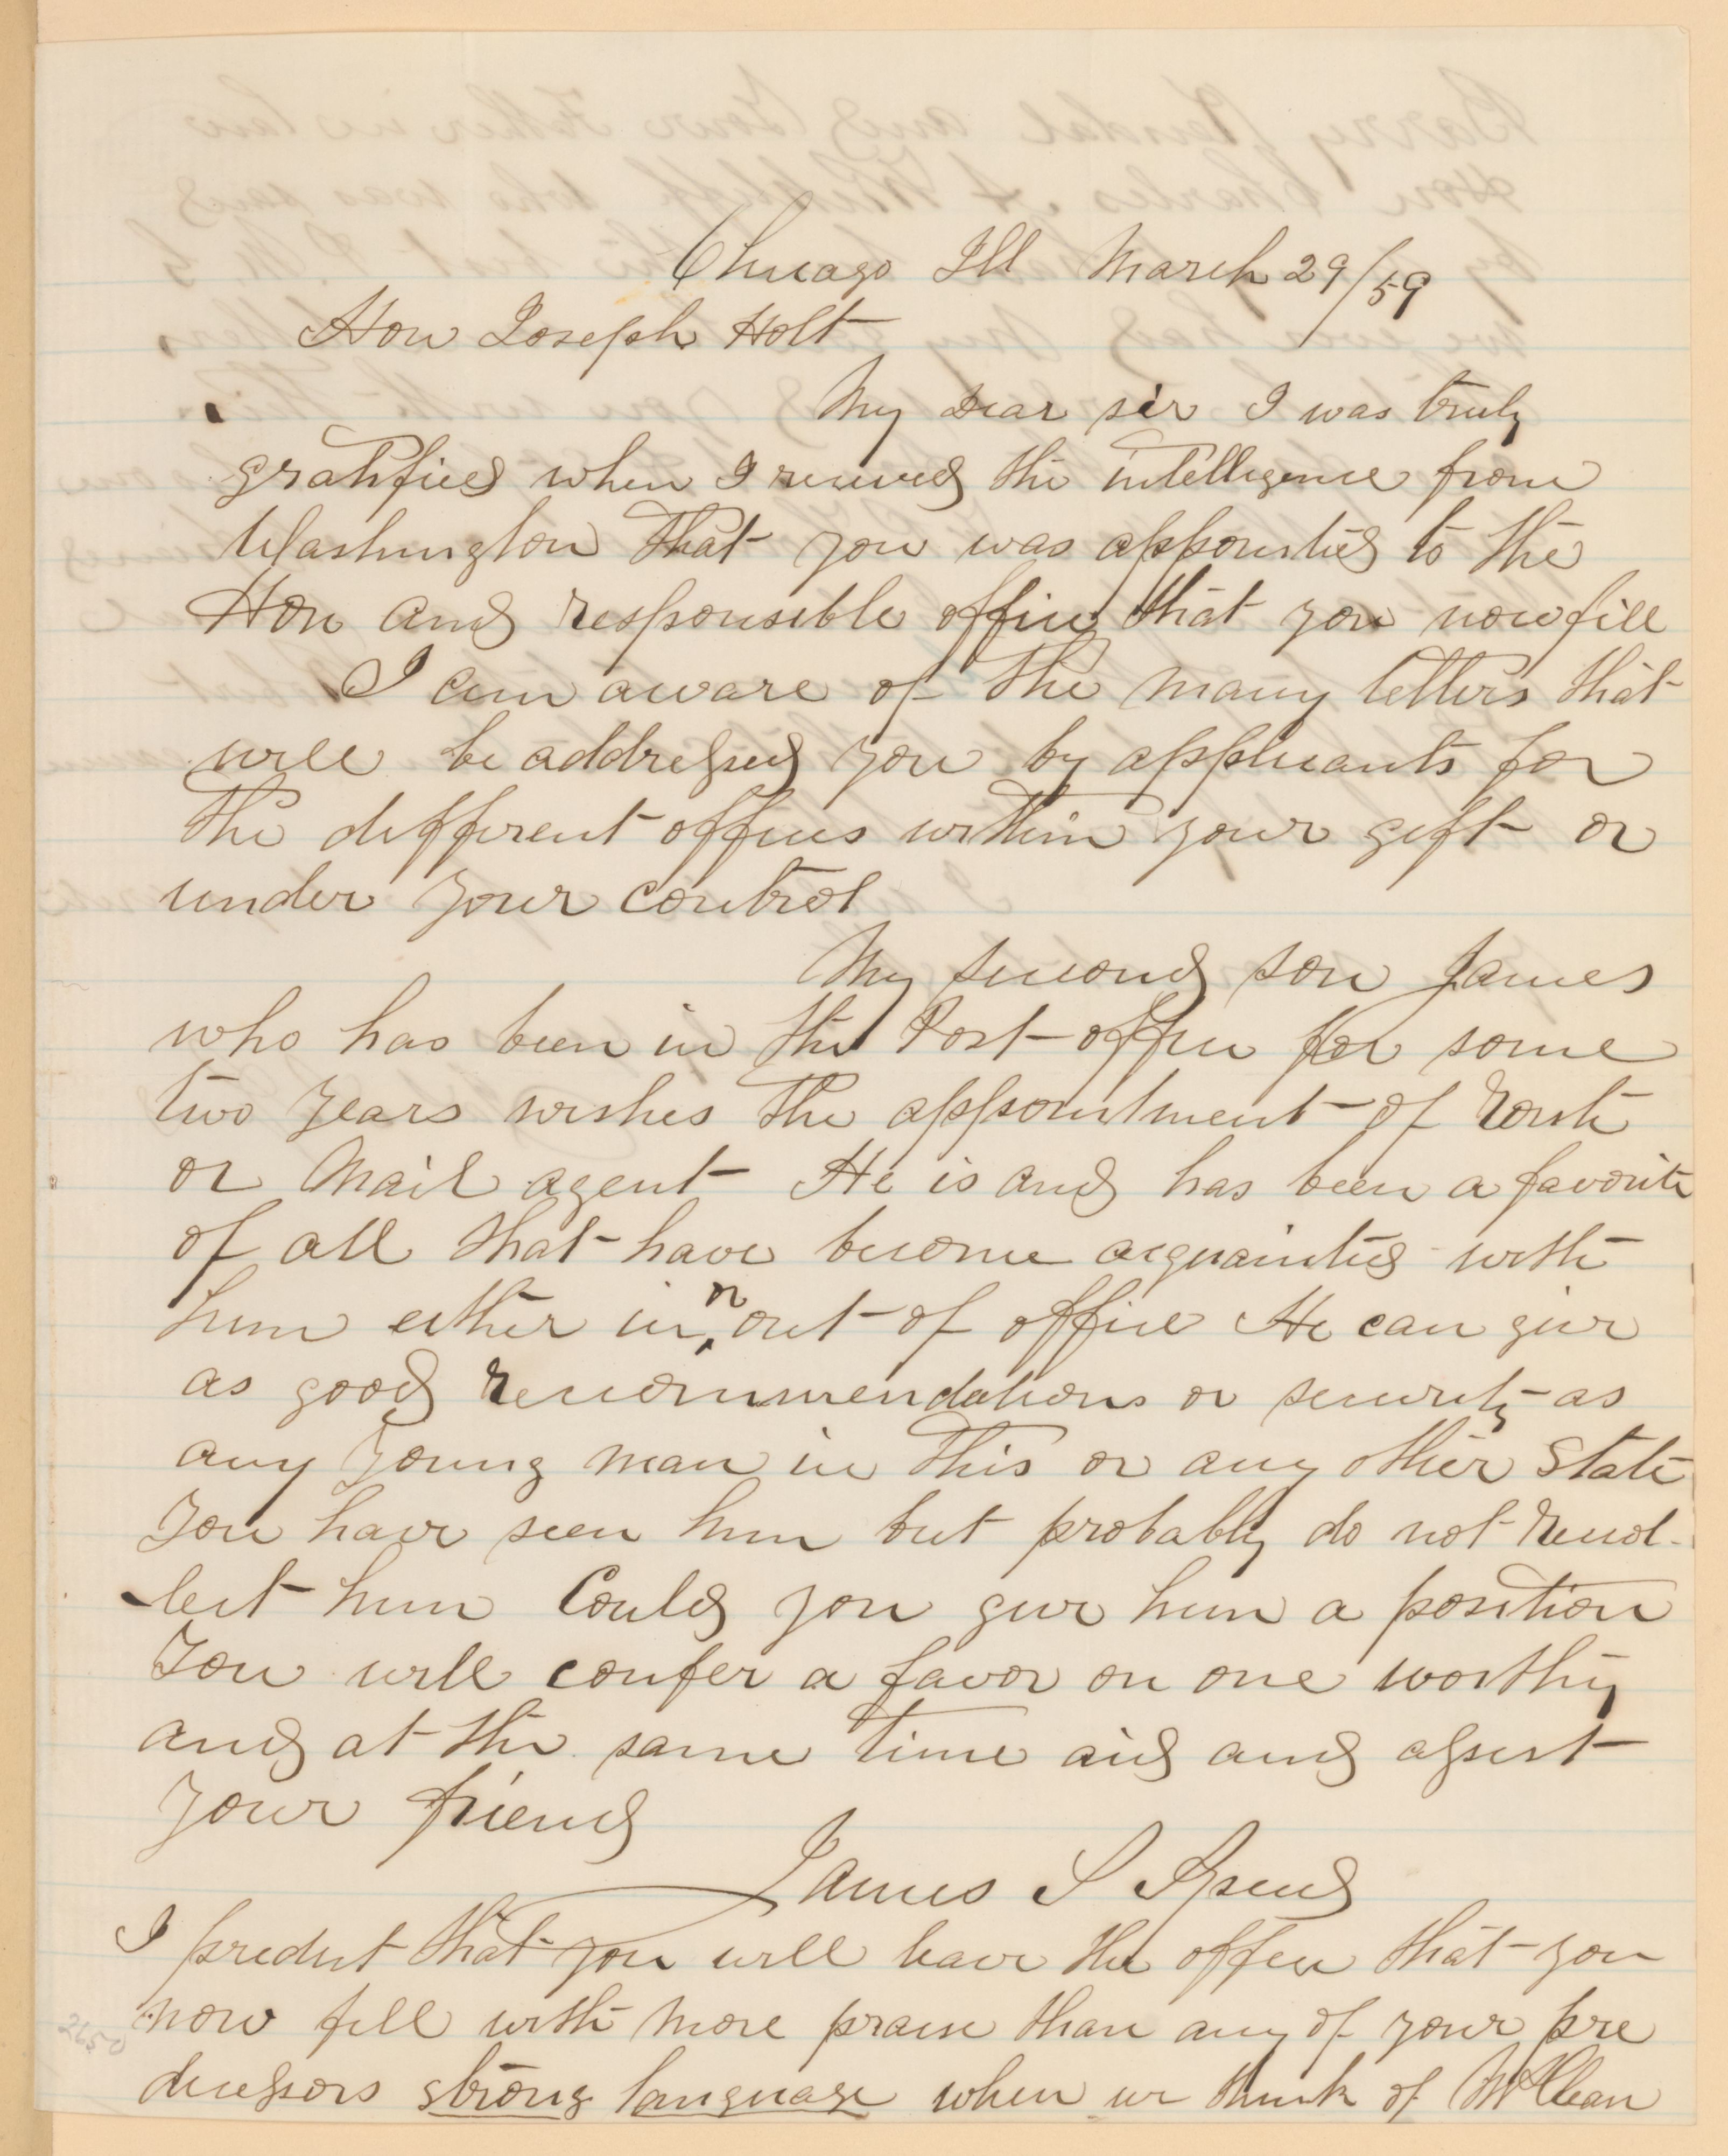 Chicago Ill March 29/59
Hon Joseph Holt
My dear sir I was truly
gratified when I received the intelligence from
Washington that you was appointed to the
Hon and responsible office that you now fill
I am aware of the many letters that
will be addressed you by applicants for
the different offices within your gift or
under your control
My second son James
who has been in the Post-office for some
two years wishes the appointment of Route
or Mail agent He is and has been a favorite
of all that have become acquainted with
him either in or out of office He can give
as good recommendations or security as
any young man in this or any other State
You have seen him but probably do not recol-
-lect him Could you give him a position
You will confer a favor on one worthy
and at the same time aid and assist
your friend
James S Speed
I predict that you will leave the office that you
now fill with more praise than any of your pre
decessors strong language when we think of McClean
2650